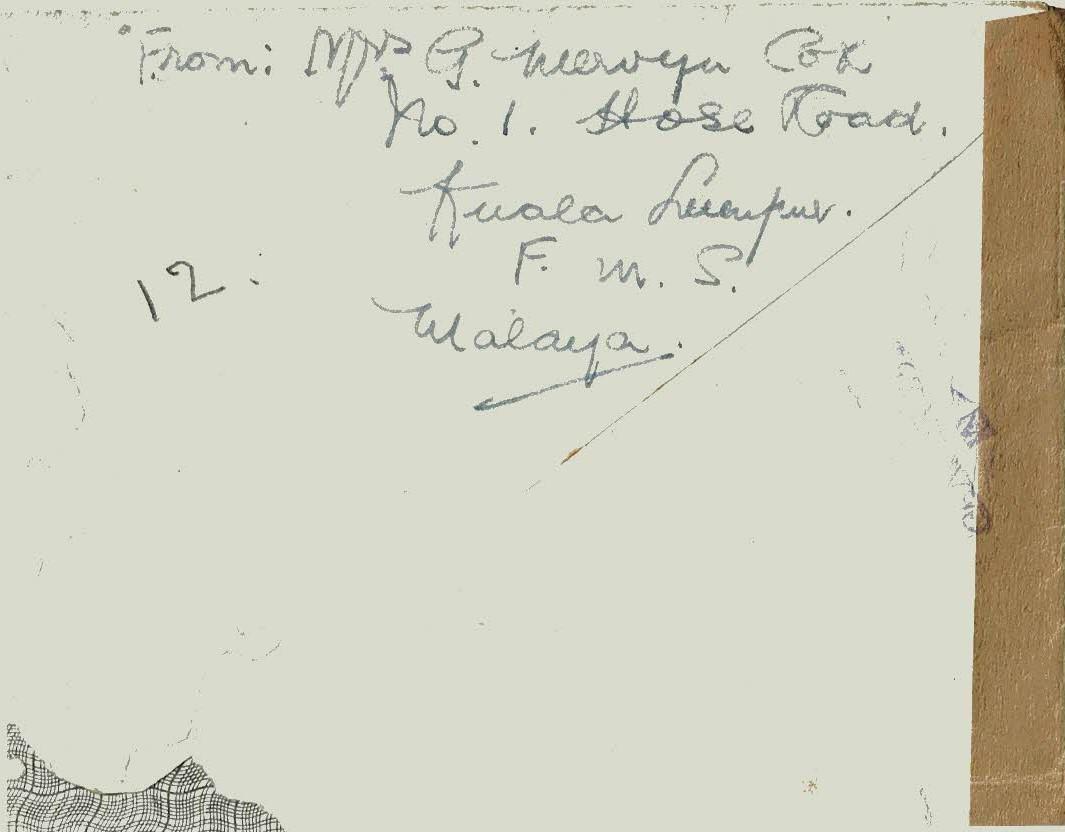 From: Mrs G. Mervyn Cox
No. 1. Hose Road.
Kuala Lumpur.
F. M. S.
Malaya.
12.